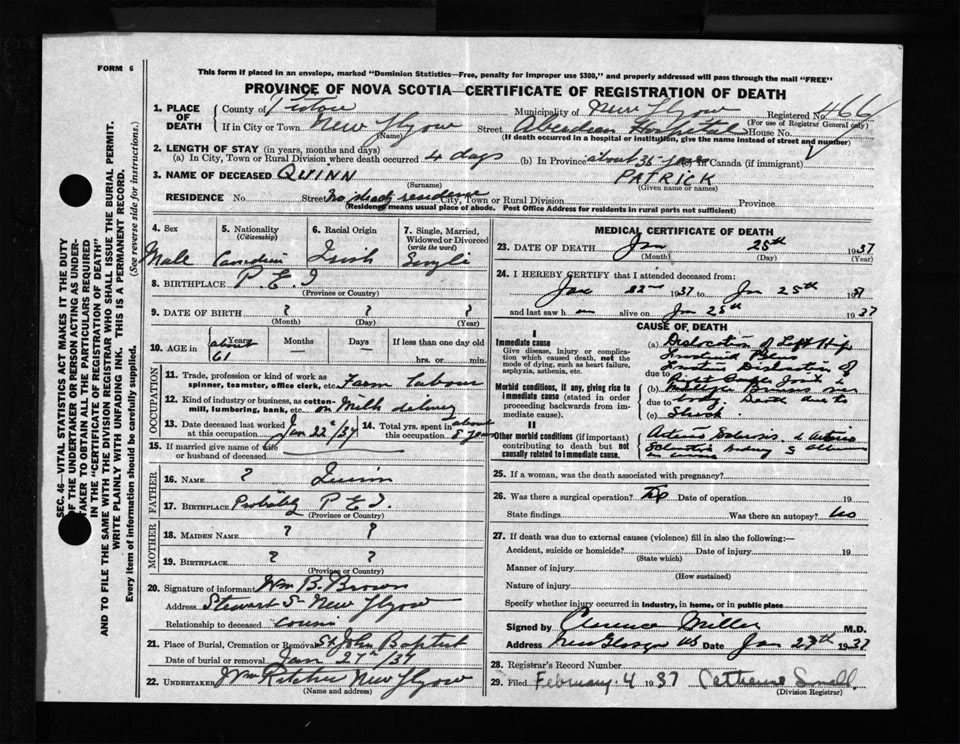 FORM 6
This form if placed in an envelope, marked "Dominion Statistics—Free, penalty for improper use $300," and properly addressed will pass through the mail "FREE"
PROVINCE OF NOVA SCOTIA—CERTIFICATE OF REGISTRATION OF DEATH
1. PLACE OF DEATH County of Pictou Municipality of New Glgow Registered No. 466
(For use of Registrar General only)
If in City or Town New Glgow Street Aberdeen Hospital House No.
(Name) (If death occurred in a hospital or institution, give the name instead of street and number)
2. LENGTH OF STAY (in years, months and days)
(a) In City, Town or Rural Division where death occurred 4 days (b) In Province about 35 years (c) In Canada (if immigrant)
3. NAME OF DECEASED QUINN PATRICK
(Surname) (Given name or names)
RESIDENCE No. Street No steady residence City, Town or Rural Division Province
(Residence means usual place of abode. Post Office Address for residents in rural parts not sufficient)
4. Sex Male
5. Nationality (Citizenship) Canadian
6. Racial Origin Irish
7. Single, Married, Widowed or Divorced (write the word) Single
8. BIRTHPLACE P. E. I
(Province or Country)
9. DATE OF BIRTH ? ? ?
(Month) (Day) (Year)
10. AGE in Years Months Days If less than one day old
about 61 hrs. or min.
OCCUPATION
11. Trade, profession or kind of work as spinner, teamster, office clerk, etc. Farm labour
12. Kind of industry or business, as cotton-mill, lumbering, bank, etc. on Milk delivery
13. Date deceased last worked at this occupation Jan 22nd/37
14. Total yrs. spent in this occupation about 8 years
15. If married give name of wife or husband of deceased
FATHER
16. Name ? Quinn
17. Birthplace Probably P E I.
(Province or Country)
MOTHER
18. MAIDEN NAME ? ?
19. BIRTHPLACE ? ?
(Province or Country)
20. Signature of informant Wm B. Brown
Address Stewart St New Glgow
Relationship to deceased cousin
21. Place of Burial, Cremation or Removal St John Baptist
Date of burial or removal Jan 27th/37
22. UNDERTAKER New Glgow
(Name and address)
MEDICAL CERTIFICATE OF DEATH
23. DATE OF DEATH Jan 25th 1937
(Month) (Day) (Year)
24. I HEREBY CERTIFY that I attended deceased from:
Jan 22nd 1937 to Jan 25th 1937
and last saw h im alive on Jan 25th 1937
CAUSE OF DEATH
I
Immediate cause
Give disease, injury or complication which caused death, not the mode of dying, such as heart failure, asphyxia, asthenia, etc.
Morbid conditions, if any, giving rise to immediate cause (stated in order proceeding backwards from immediate cause).
II
Other morbid conditions (if important) contributing to death but not causally related to immediate cause.
(a) Dislocation of Left Hip
due to
(b) Multiple Bruises over
due to body. Death due to
(c) Shock.
25. If a woman, was the death associated with pregnancy?
26. Was there a surgical operation? Date of operation 19
State findings Was there an autopsy? No
27. If death was due to external causes (violence) fill in also the following:—
Accident, suicide or homicide? Date of injury 19
(State which)
Manner of injury
(How sustained)
Nature of injury
Specify whether injury occurred in industry, in home, or in public place
Signed by Clarence Miller M.D.
Address New Glasgow NS Date Jan 27th 1937
28. Registrar's Record Number
29. Filed February 4 1937 Catherine Small
(Division Registrar)
SEC. 46—VITAL STATISTICS ACT MAKES IT THE DUTY
OF THE UNDERTAKER OR PERSON ACTING AS UNDER-
TAKER TO OBTAIN ALL THE PARTICULARS REQUIRED
IN THE "CERTIFICATE OF REGISTRATION OF DEATH"
AND TO FILE THE SAME WITH THE DIVISION REGISTRAR WHO SHALL ISSUE THE BURIAL PERMIT.
WRITE PLAINLY WITH UNFADING INK. THIS IS A PERMANENT RECORD.
Every item of information should be carefully supplied. (See reverse side for instructions.)